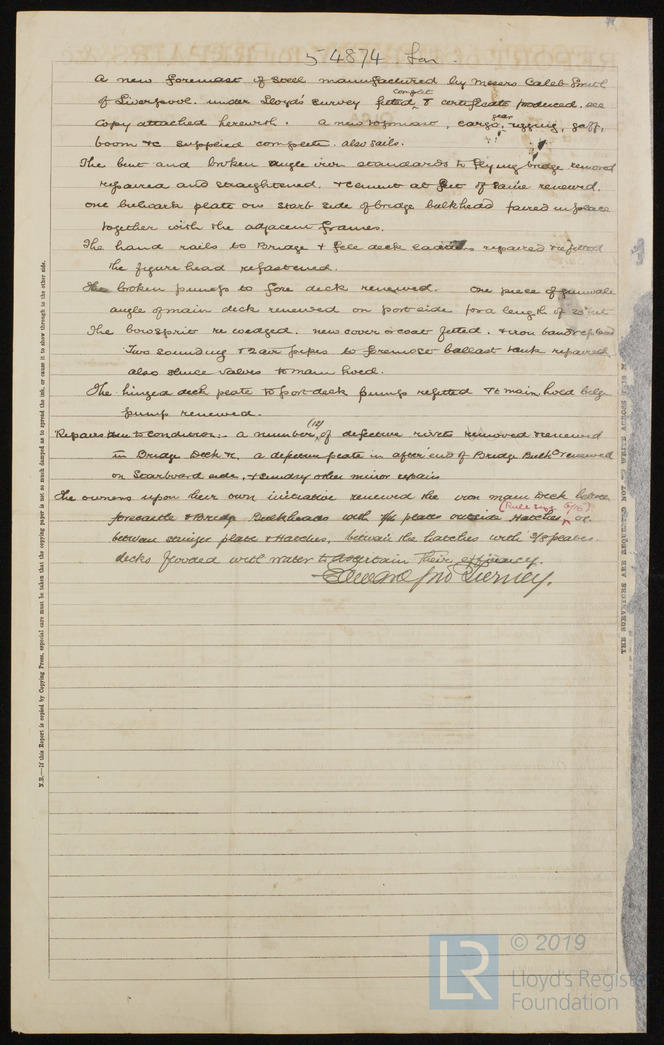 54874
A new foremast of steel manufactured by Messrs Caleb Smith
of Liverpool. under Lloyd's survey fitted complet & certificate produced. see
copy attached herewith. A new topmast, cargo gear, rigging, gaff,
boom &c supplied complete. also sails.
The bent and broken angle iron standards to flying bridge removed
repaired and straightened. & cement at feet of same renewed.
one bulwark plate on starb side of bridge bulkhead faired in place
together with the adjacent frames.
The hand rails to Bridge & deck ladders repaired & refitted
the figure head refastened.
The broken pumps to fore deck renewed. One piece of gunwale
angle of main deck renewed on port side for a length of
The bowsprit rewedged. new cover or coat fitted. & iron band replaced
Two sounding & 2 air pipes to foremost ballast tank repaired.
also sluice valves to main hold.
The hinged deck plate to port deck pumps refitted & main hold bilge
pump renewed.
Repairs due to condition:- a number (12) of defective rivets removed & renewed
in Bridge Deck &c, a defective plate in after end of Bridge Bulkd renewed
on Starboard side, & sundry other minor repairs
The owners upon their own initiative renewed the iron main deck between
forecastle & Bridge Bulkheads with plates outside Hatches, or
between stringer plate & Hatches, between the hatches with plates.
decks flooded with water to ascertain their efficiency.
Edward Jno Tierney.
N.B.—If this Report is copied by Copying Press, especial care must be taken that the copying paper is not so much damped as to spread the ink, or cause it to show through to the other side.
THE SURVEYORS ARE REQUESTED NOT TO WRITE ACROSS THIS M
LR
© 2019
Lloyd's Register
Foundation